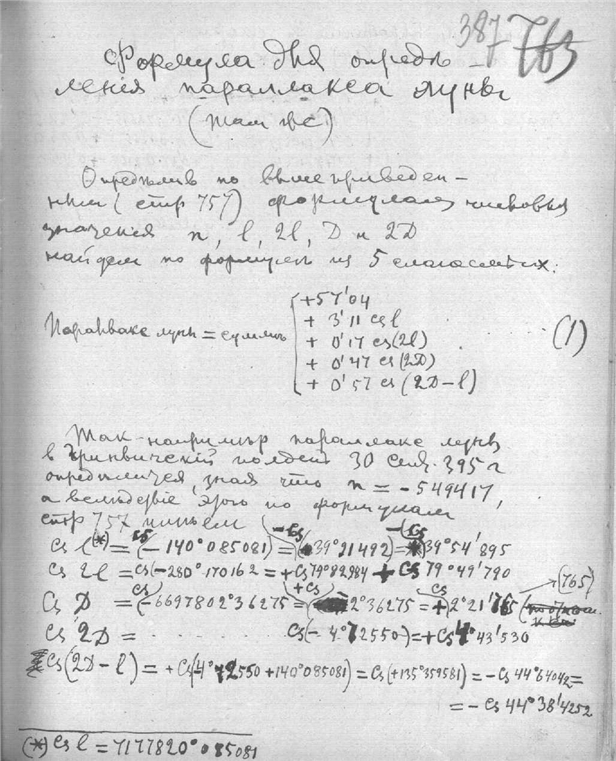 387 765
Формула для опредѣ
ленія параллакса луны
(там же)
Опредѣлив по вышеприведен-
ным (стр 757) формулам числовыя
значенія n, l, 2l, D и 2D
найдем по формулѣ из 5 слагаемых:
Параллакс луны = суммѣ
+57'04
+ 3'11 cs l
+ 0'17 cs (2l)
+ 0'47 cs (2D)
+ 0'57 cs (2D-l)
(1)
Так напримѣр параллакс луны
в Гринвическій полдень 30 сент. 395 г
опредѣлится, зная что n = -549417,
а вслѣдствіе этого по формулам
стр 757 имѣем
Cs l(*) = cs(-140°085081) = -cs(39°21492) = -cs 39°54'895
Cs 2l = cs(-280°170162 = +cs 79°82984 + cs 79°49'790
Cs D = cs(-6697802°36275 = +cs 2°36275 = cs + 2°21'765 (765)
Cs 2D = cs(-4°72550) = +cs 4°43'530
Cs(2D-l) = +cs(-4°72550+140°085081) = Cs(+135°359581) = -cs 44°64042=
= -cs 44°38'4252
(*) Cs l = 7177820°085081